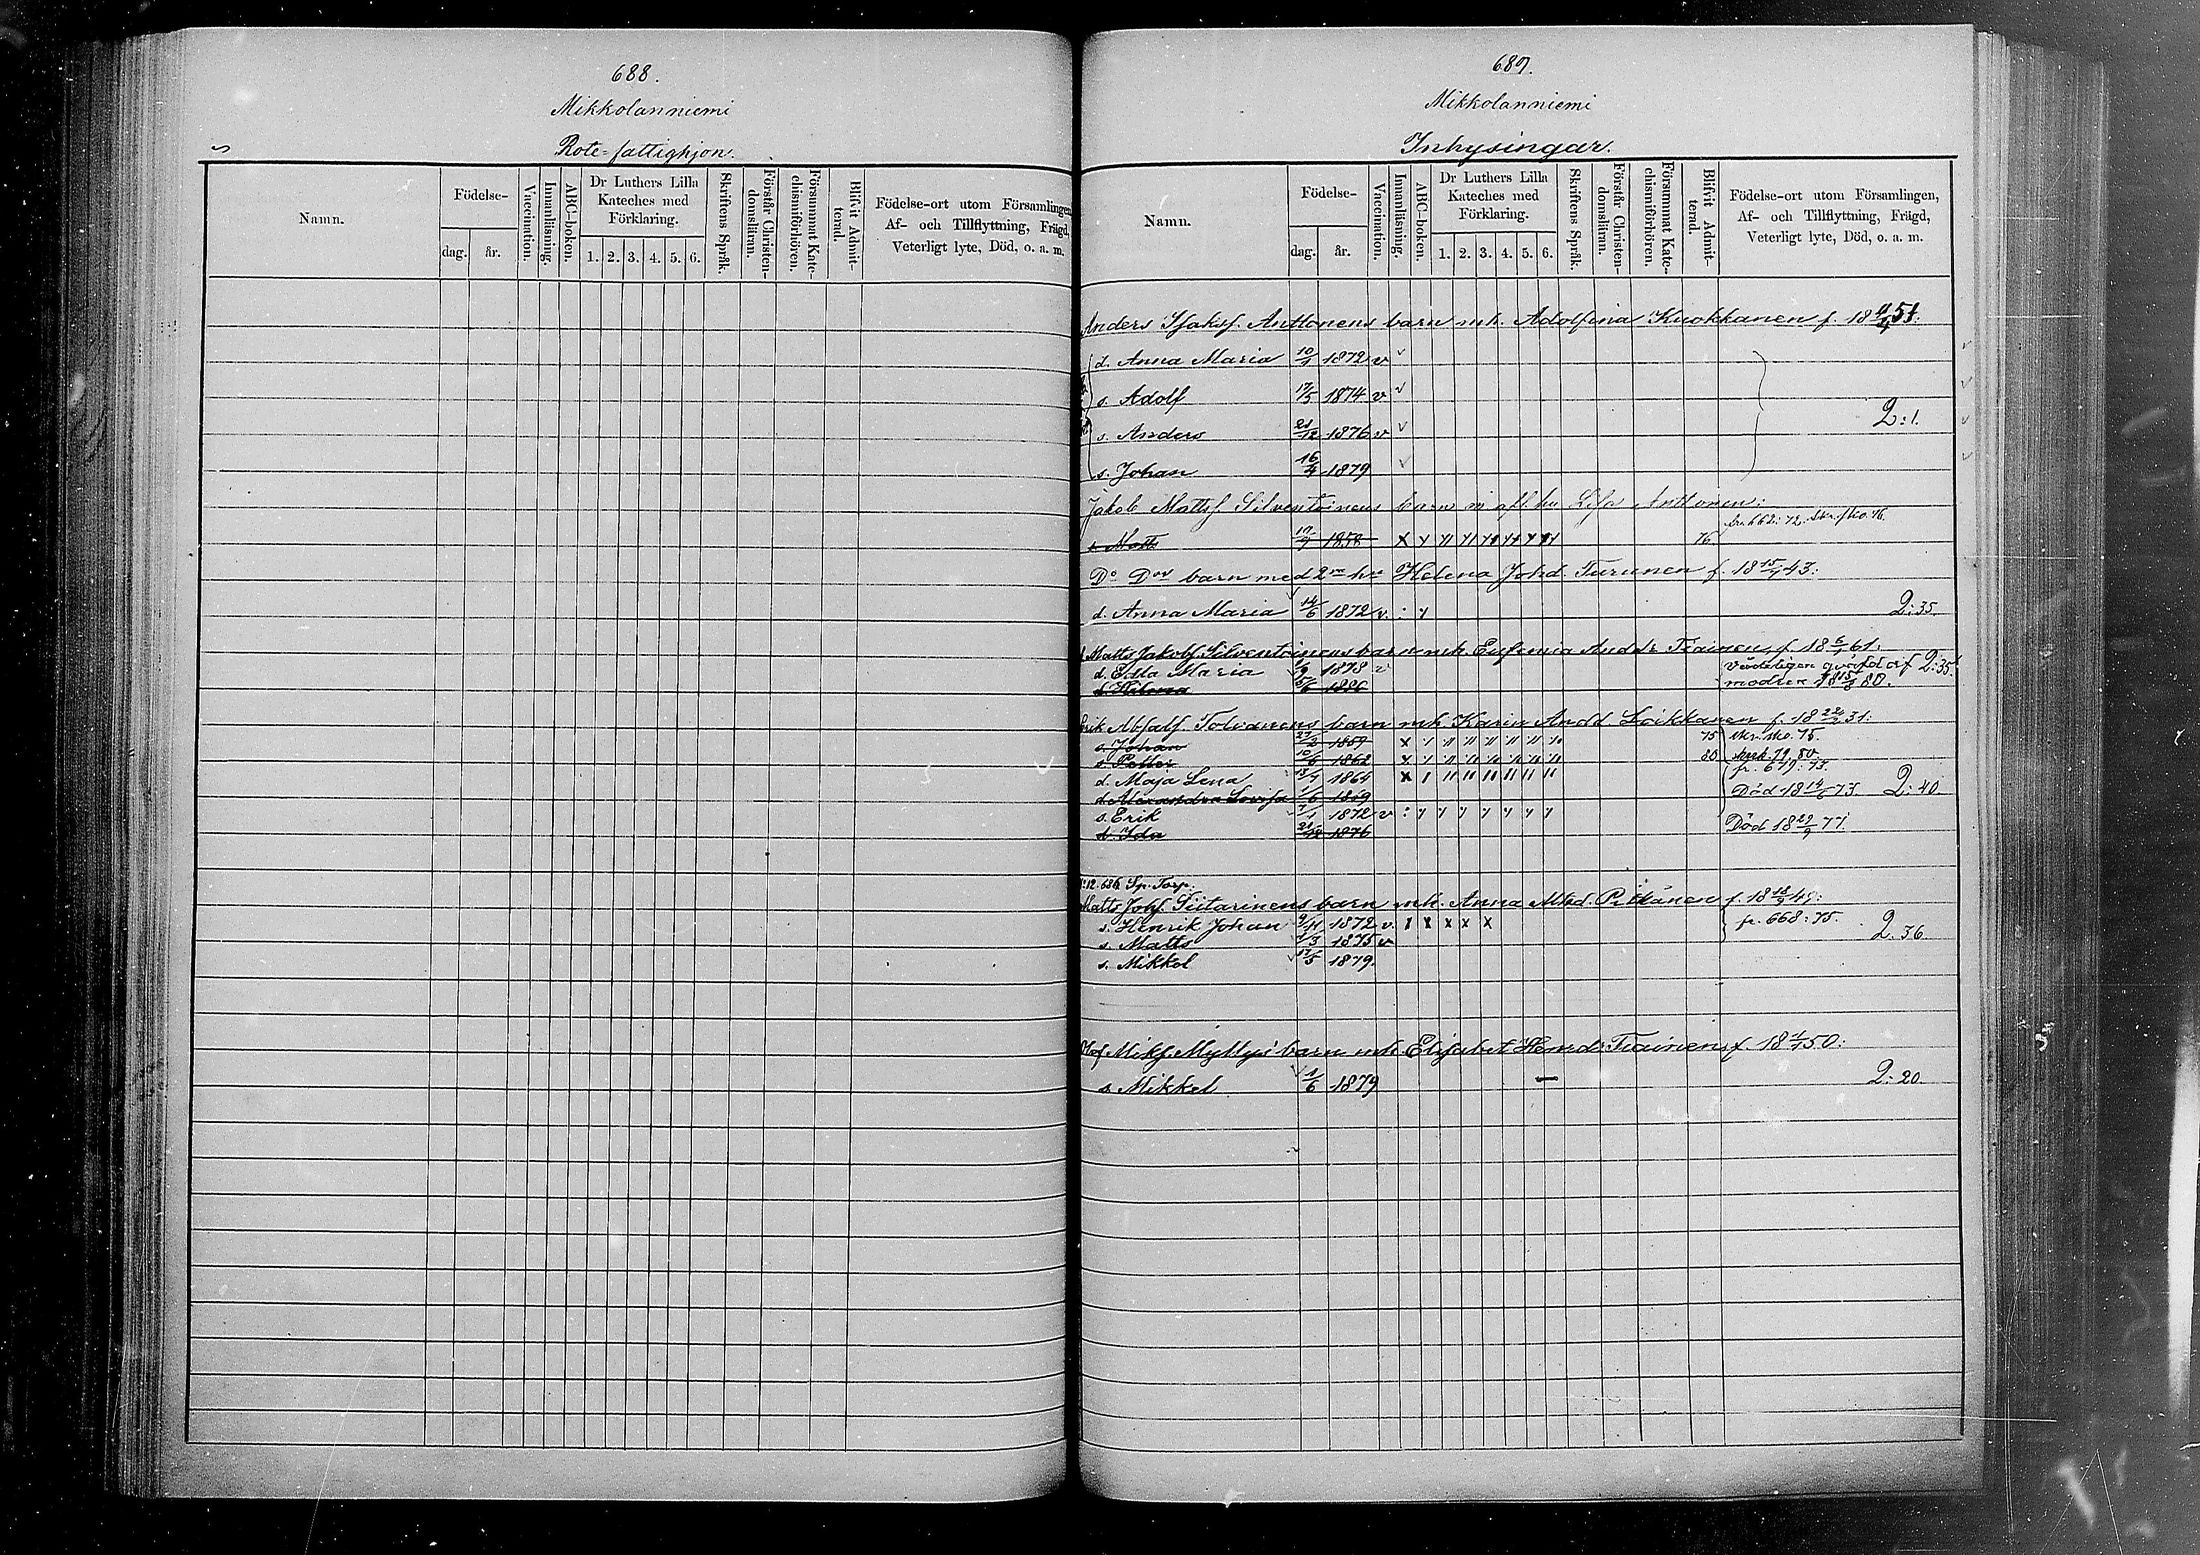 688.
Mikkolanniemi
Rote-fattighjon.
Namn.
Födelse-
dag. år.
Vaccination.
Innanläsning.
ABC-boken.
Dr Luthers Lilla
Kateches med
Förklaring.
1. 2. 3. 4. 5. 6.
Skriftens Språk.
Förstår Christen-
domsläran.
Försummat Kate-
chismiförhören.
Blifvit Admit-
terad.
Födelse-ort utom Församlingen,
Af- och Tillflyttning, Frägd,
Veterligt lyte, Död, o. a. m.
689.
Mikkolanniemi
Inhysingar.
Namn.
Födelse-
dag. år.
Vaccination.
Innanläsning.
ABC-boken.
Dr Luthers Lilla
Kateches med
Förklaring.
1. 2. 3. 4. 5. 6.
Skriftens Språk.
Förstår Christen-
domsläran.
Försummat Kate-
chismiförhören.
Blifvit Admit-
terad.
Födelse-ort utom Församlingen,
Af- och Tillflyttning, Frägd,
Veterligt lyte, Död, o. a. m.
Anders Isaksf. Anttonens barn mh. Adolfina Kuokkanen f. 18 51:
d. Anna Maria 10/1 1872 v
s. Adolf 17/5 1874 v
s. Anders 21/12 1876 v 2:1.
s. Johan 16/4 1879
Jakob Mattsf. Silventoinens barn m afl. hu Lisa Anttonen:
s. Matts 17/9 1858 x 76
D:o D:ns barn med 2:ra h:u Helena Johd. Turunen f. 18 15/7 43:
d. Anna Maria 14/6 1872 v. 2:35.
Matts Jakobf. Silventoinens barn mh. Eufemia Andd:r Tiainen, f. 18 6/1 61:
d. Edla Maria 1/9 1878 v Vådeligen qväfd af 2:35.
d. Hilma 5/6 1880 modren 18 15/8 80.
Erik Absalf. Tolvanens barn mh Karin Andd Loikkanen f. 18 22/2 31:
s. Johan 27/2 1859 x 75 skr. sko. 75.
s. Petter 10/6 1862 x 80 79. 80
d. Maja Lena 13/7 1864 x fr. 649: 73.
d. Alexandra Lovisa 1/6 1869 Död 18 14/6 73. 2:40.
s. Erik 7/1 1872 v
d. Ida 21/12 1876 Död 18 29/9 77.
N:o 12. 686 Sp. Torp.
Matts Johf. Siitarinens barn mh. Anna Mtsd. Pitkänen f. 18 18/9 49:
s. Henrik Johan 9/11 1872 v. x x x x fr. 668: 75.
s. Matts 7/3 1875 v 2.36
s. Mikkel 17/5 1879.
Olof Mikf. Myllys' barn mh. Elisabet Henrd:r Tiainen, f. 18 4/1 50:
s. Mikkel 1/6 1879 — 2:20.